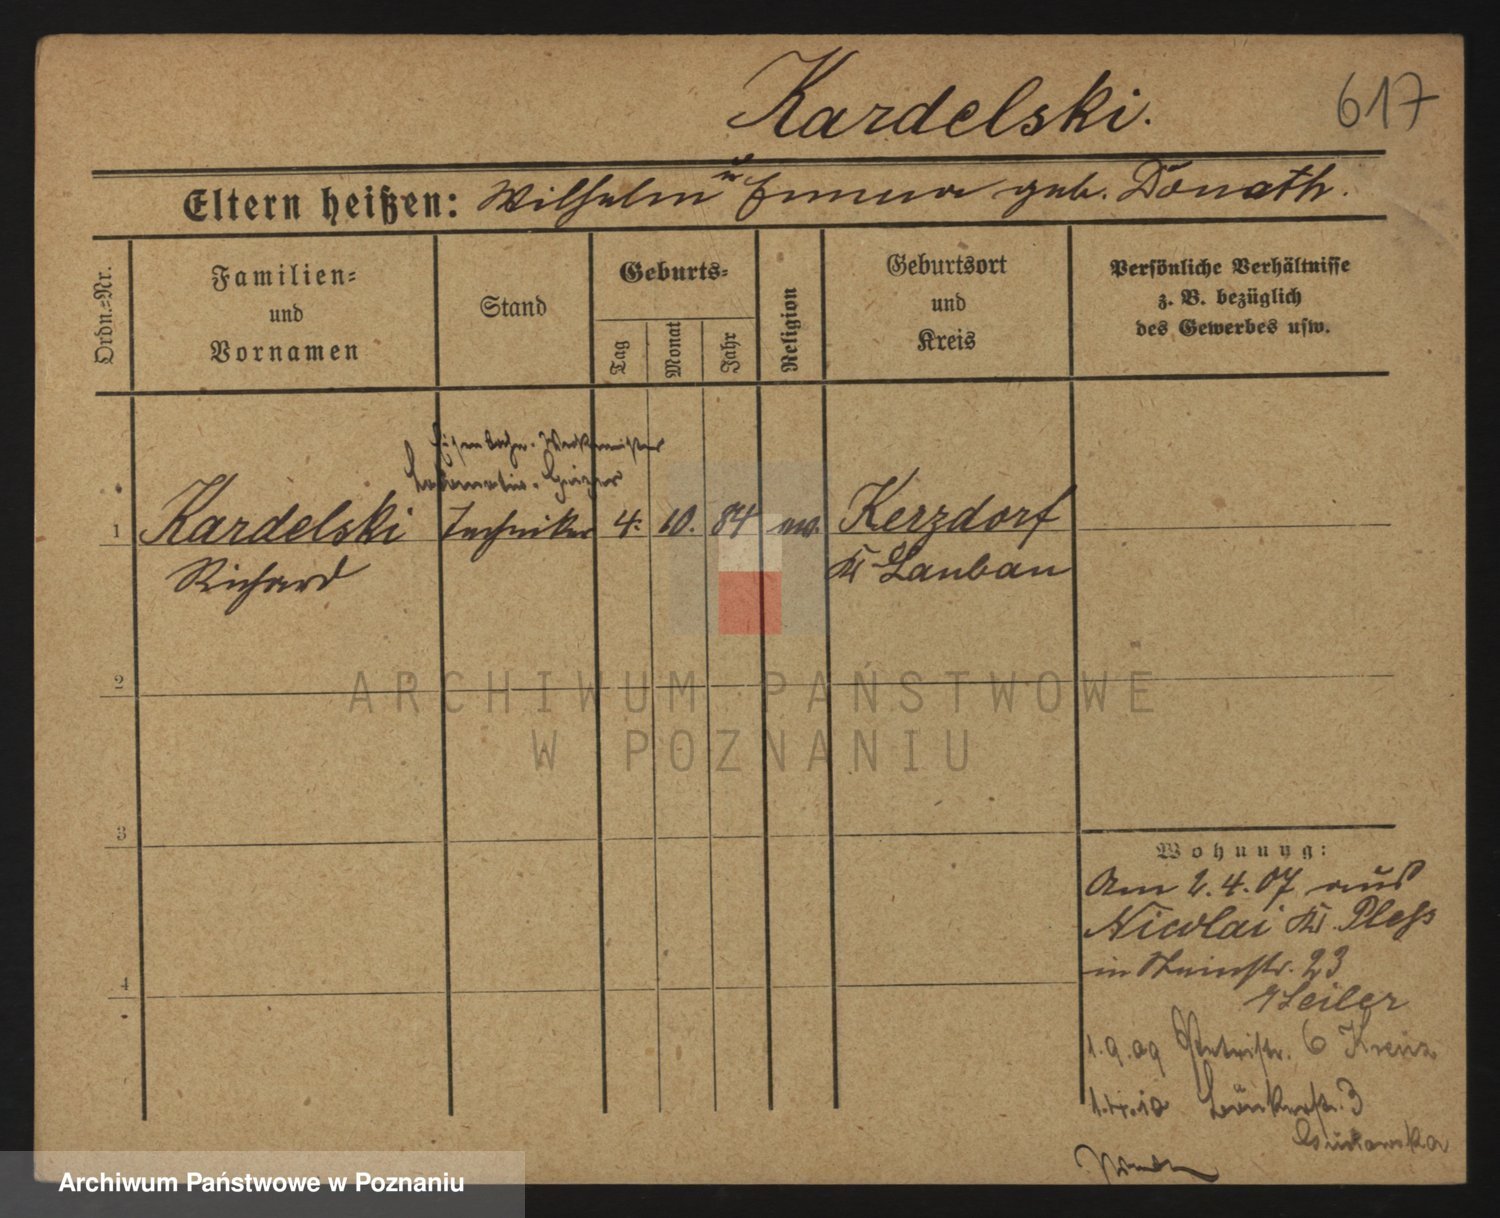 Kardelski.
617
Eltern heißen: Wilhelm u Emma geb. Donath.
Ordn.=Nr.
Familien=
und
Vornamen
Stand
Geburts=
Tag
Monat
Jahr
Religion
Geburtsort
und
Kreis
Persönliche Verhältnisse
z. B. bezüglich
des Gewerbes usw.
Eisenbahn-Werkmeister
Lokomotiv-Heizer
1 Kardelski Techniker 4. 10. 84 ev. Kerzdorf
Richard Kr Lauban
2
ARCHIWUM PAŃSTWOWE
W POZNANIU
3
Wohnung:
Am 2.4.07 aus
Nicolai Kr. Pleß
4
in Steinstr. 23
Seiler
1.9.09 Petristr. 6 Kreuz
1.4.10 3
Archiwum Państwowe w Poznaniu